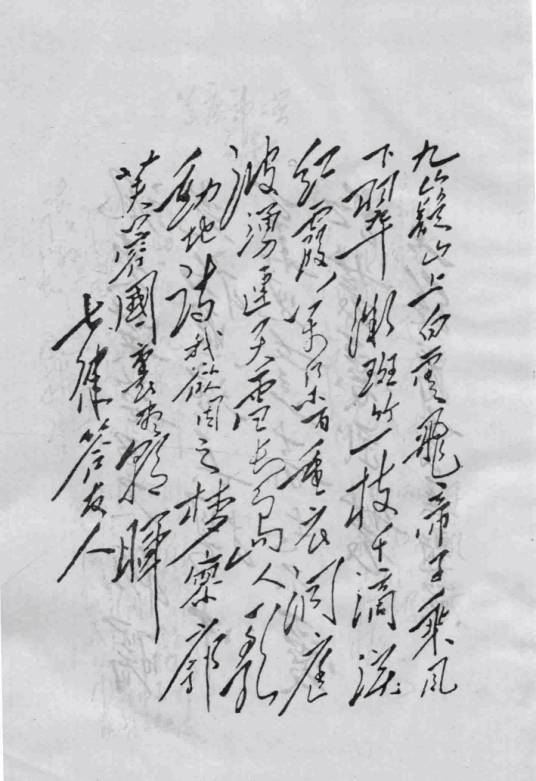 九嶷山上白雲飛帝子乘风
下翠微斑竹一枝千滴淚
红霞萬朵百重衣洞庭
波湧連天雪長島人歌
動地詩我欲因之梦寥廓
芙蓉國裏盡朝暉
七律答友人